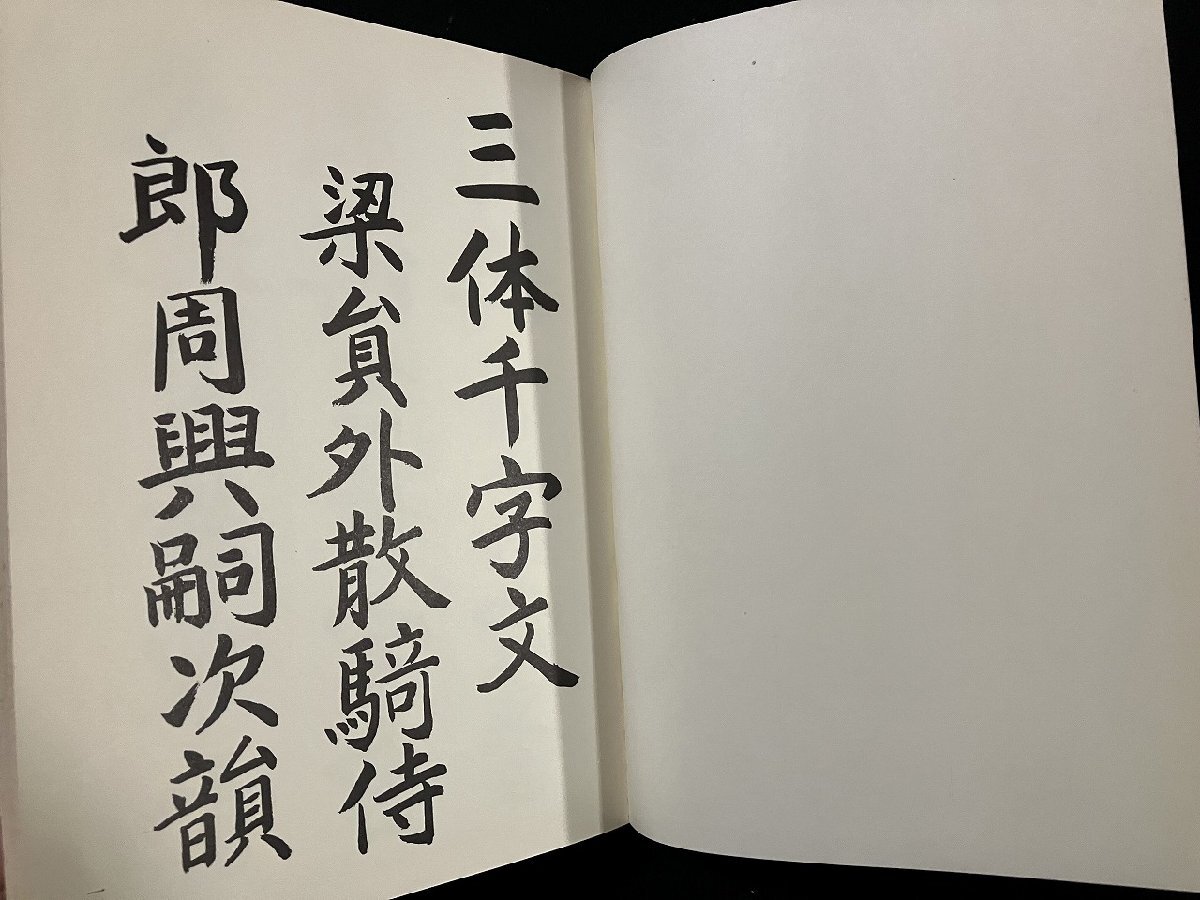 三体千字文
梁貟外散騎侍
郎周興嗣次韻